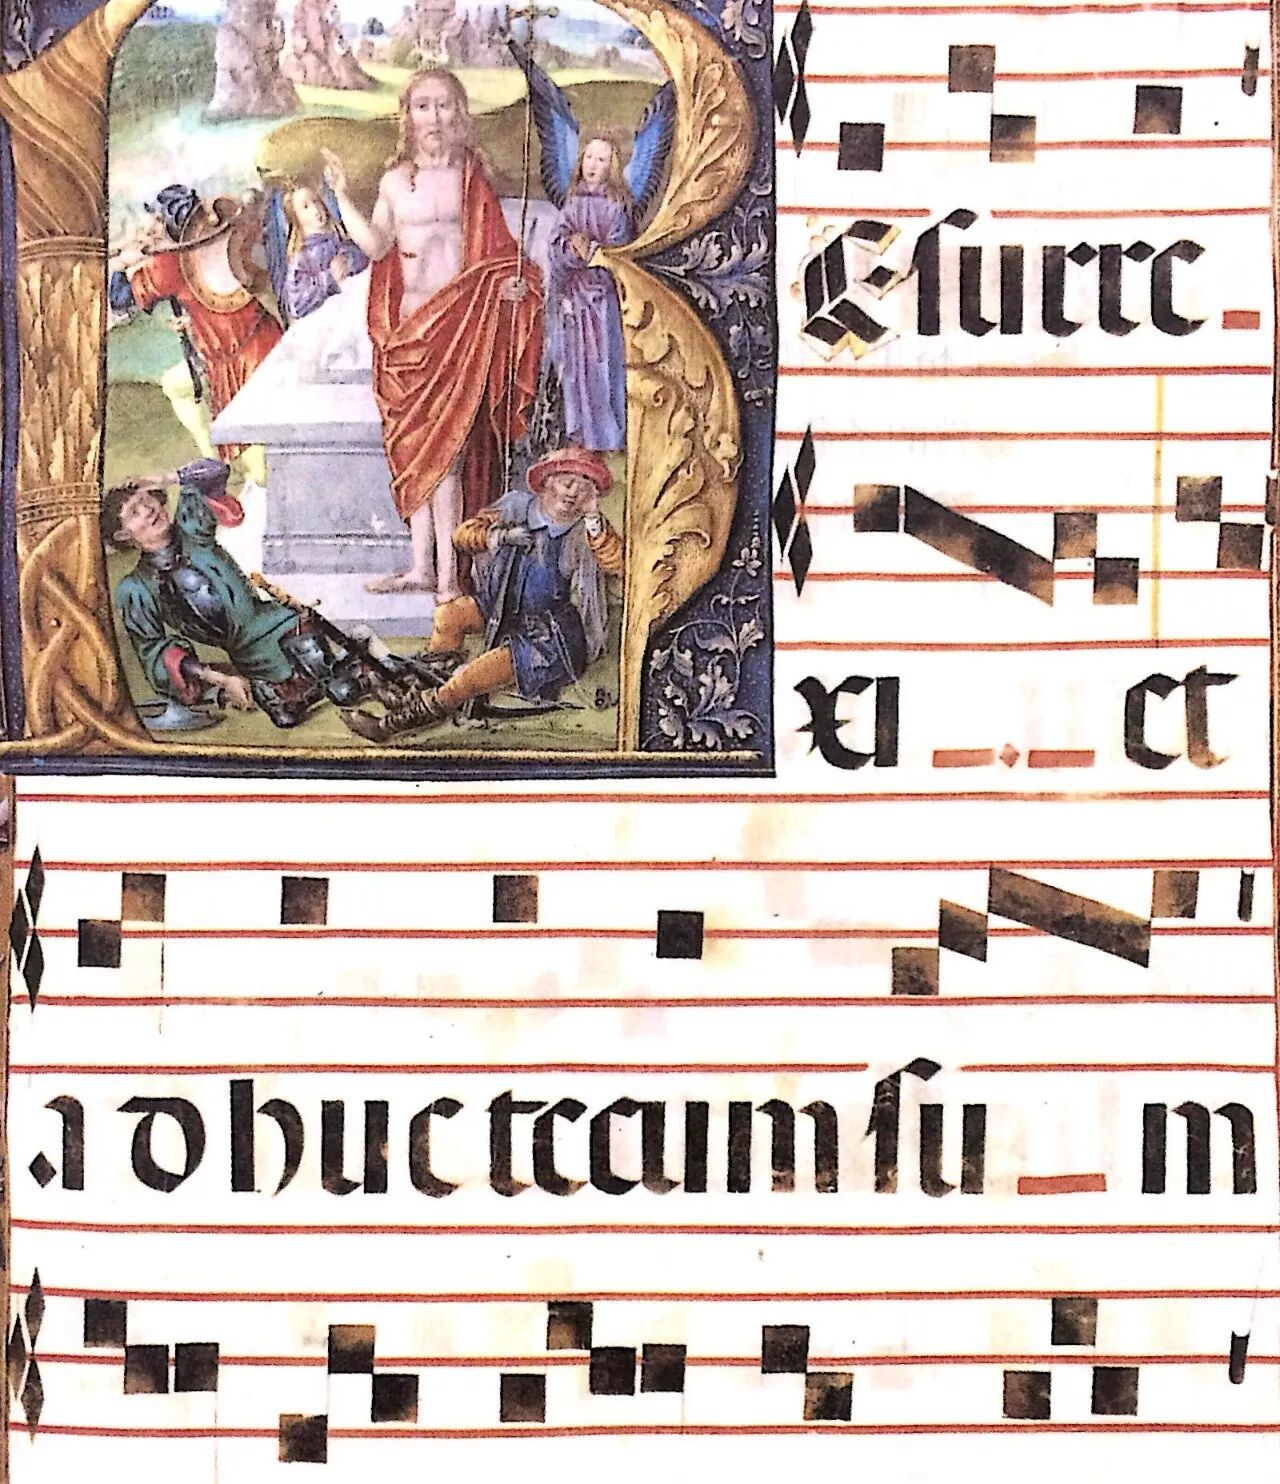 REsurre
xi et
adhuc tecum sum